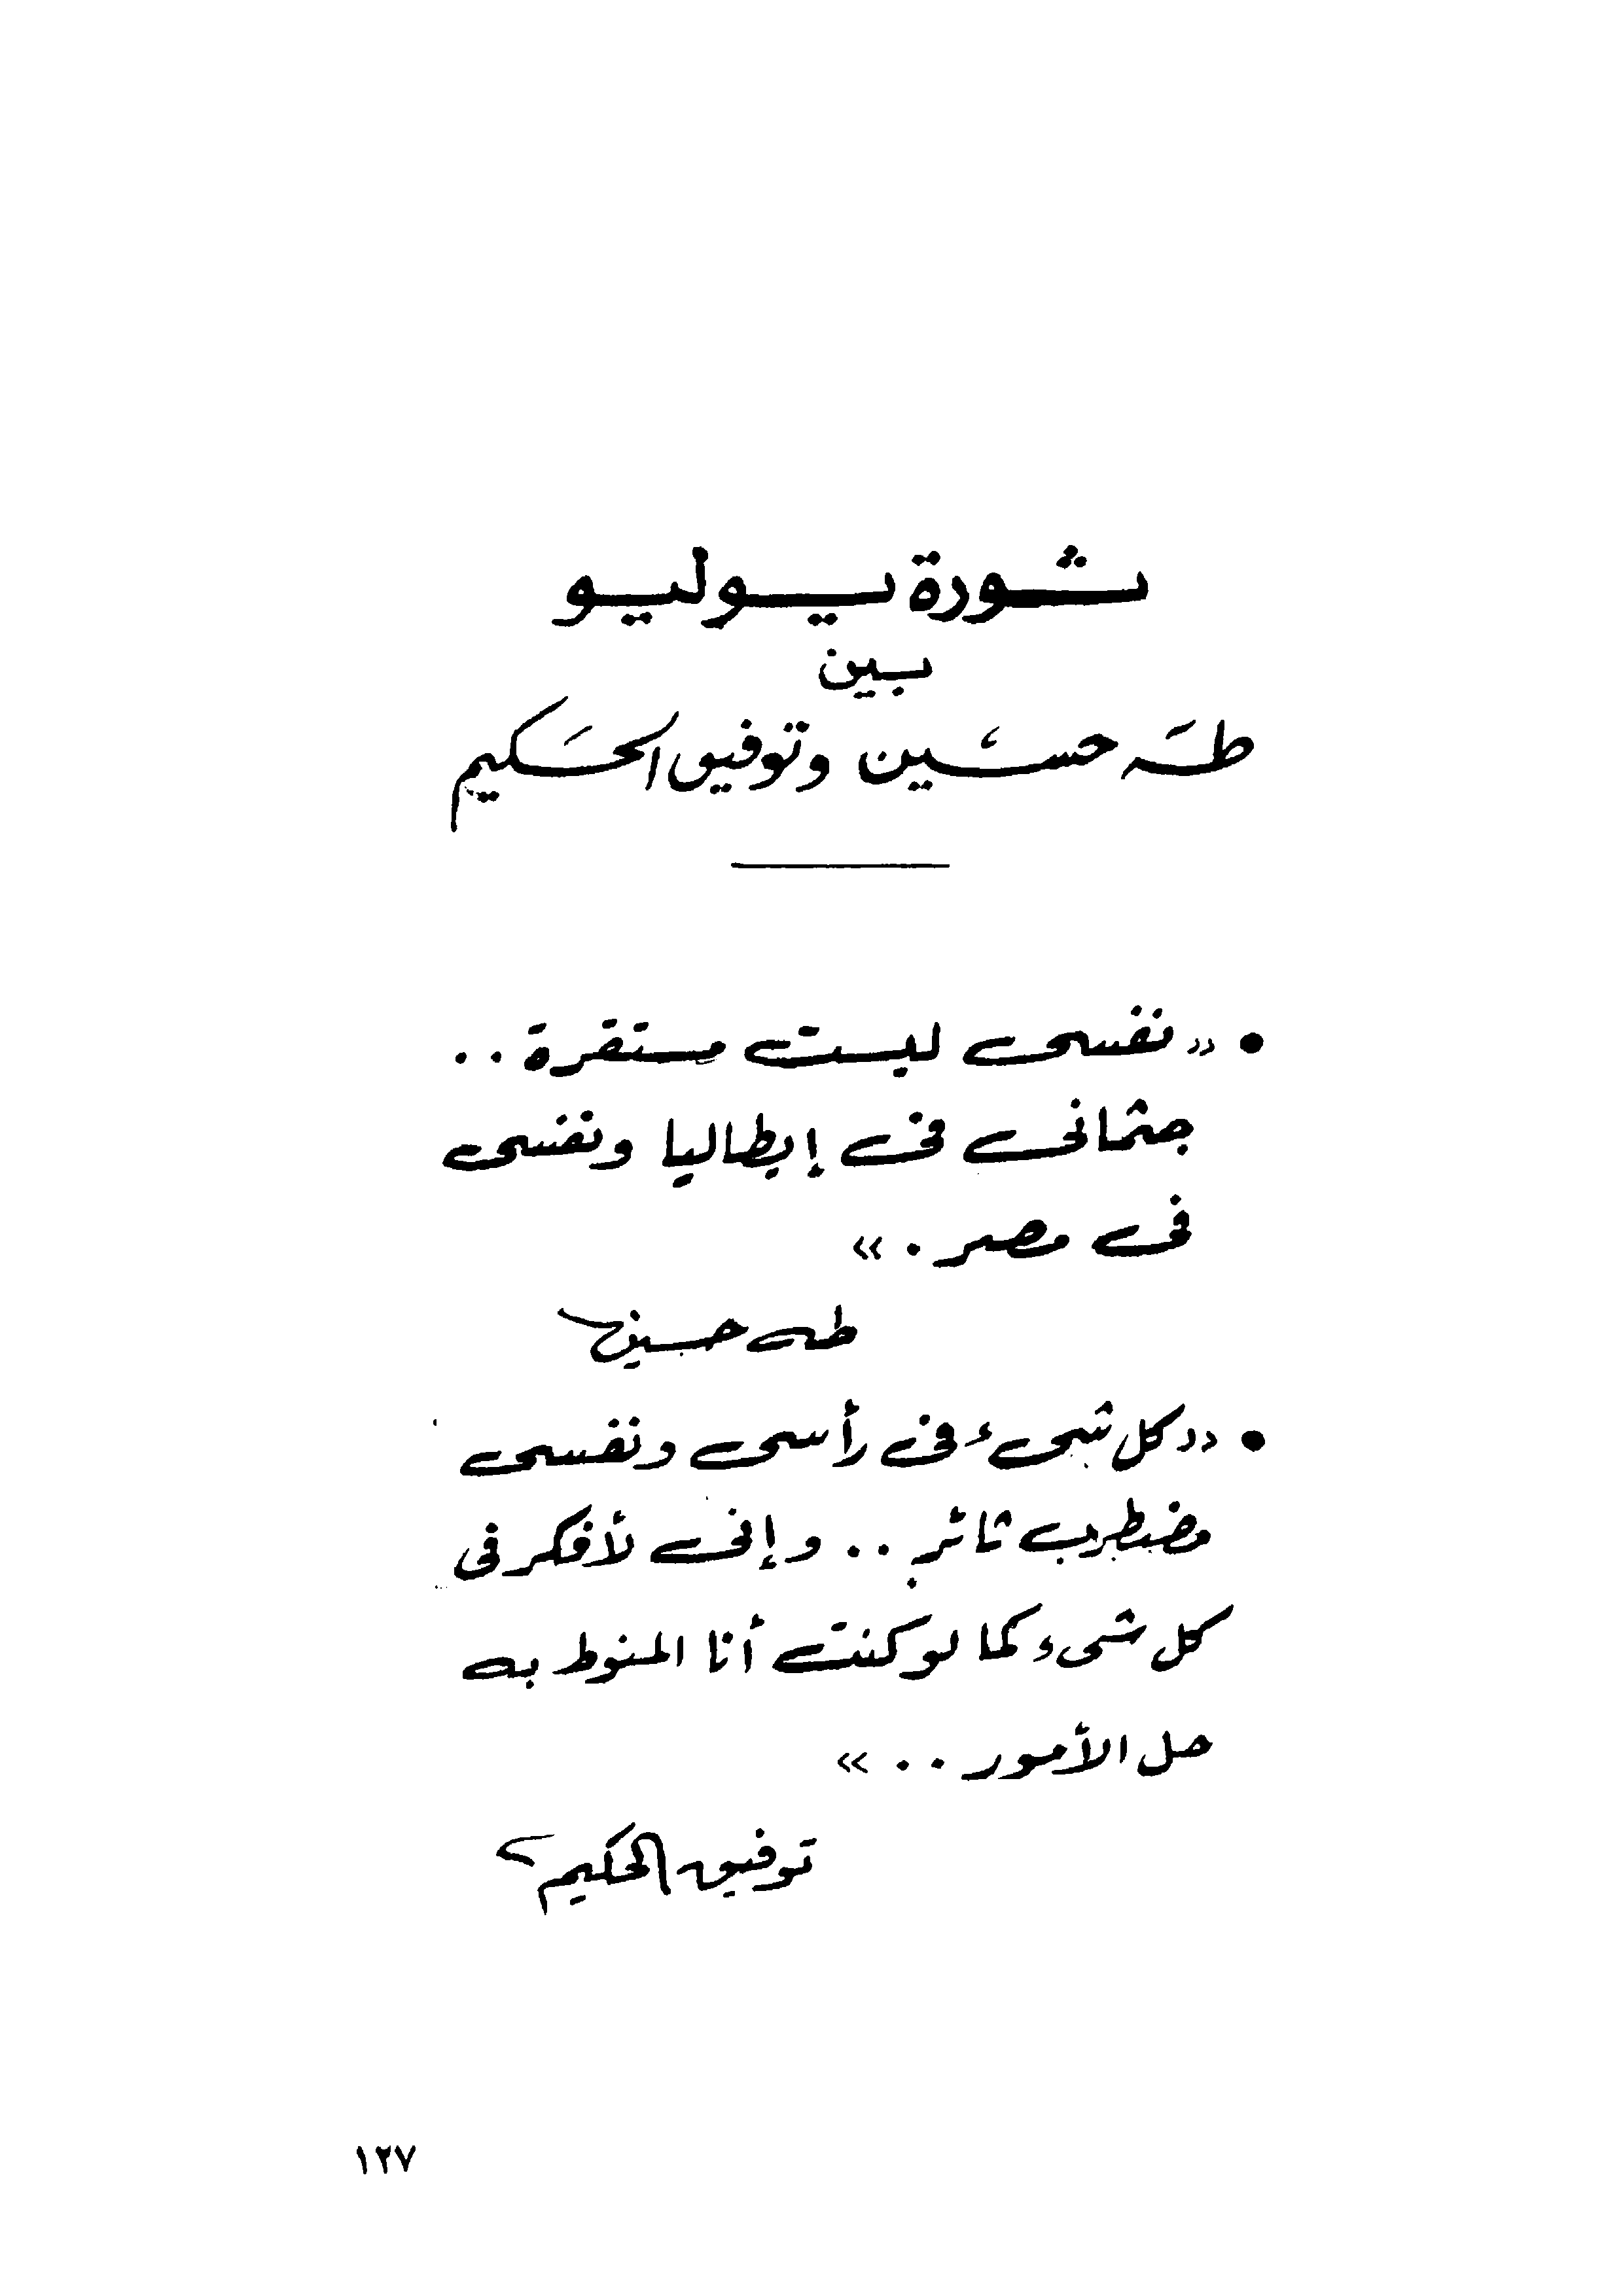 ثورة يوليو
بين
طه حسين وتوفيق الحكيم
• «نفسى ليست مستقرة ..
جثمانى فى إيطاليا ونفسى
فى مصر . »
طه حسين
• «كل شىء فى رأسى ونفسى
مضطرب ثائر .. وإنى لأفكر فى
كل شىء كما لو كنت أنا المنوط به
حل الأمور .. »
توفيق الحكيم
١٢٧